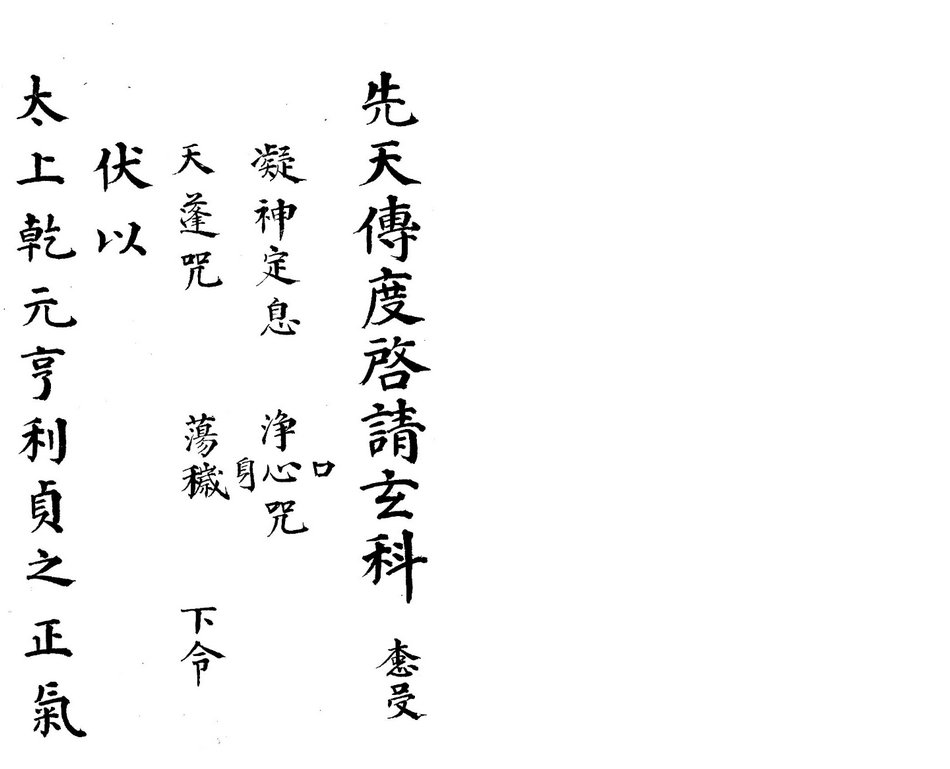 先天傳度啓請玄科 受
凝神定息 浄口心身咒
天蓬咒 蕩穢 下令
伏以
太上乾元亨利貞之正氣